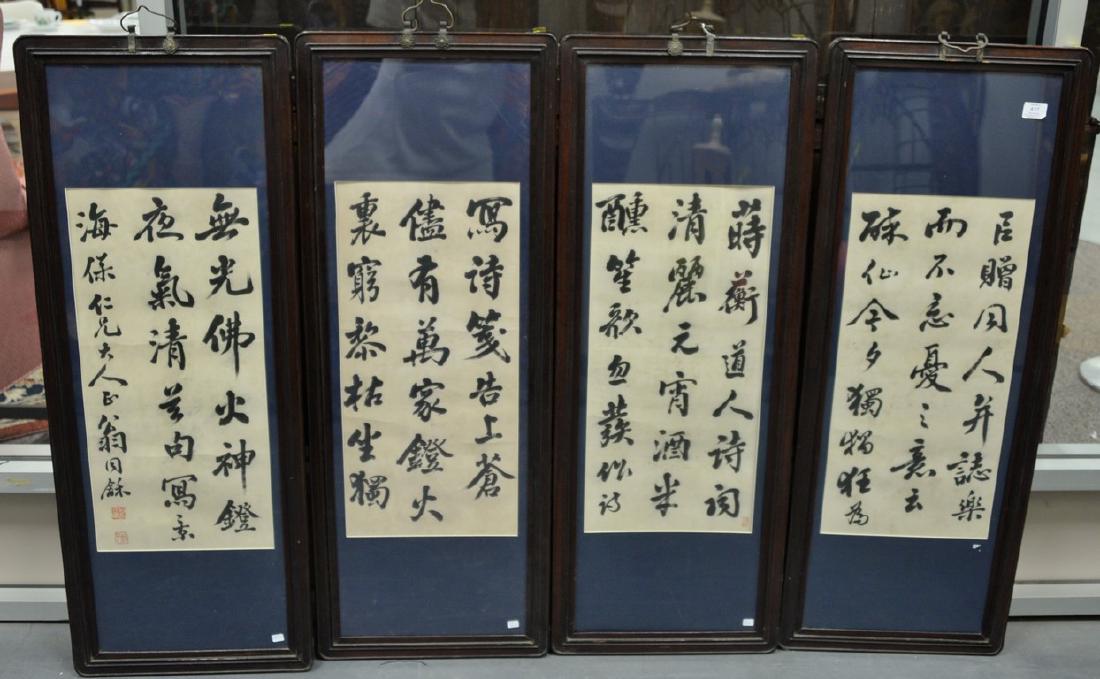 蒔蘅道人詩詞
清麗元宵酒半
醺笙歌忽發作詩
㠯贈同人并誌樂
而不忘憂之意云
酥仙今夕獨猖狂為
寫詩箋告上蒼
儘有萬家鐙火
裏窮黎枯坐獨
無光佛火神鐙
夜氣清句寫
海保仁兄大人正翁同龢